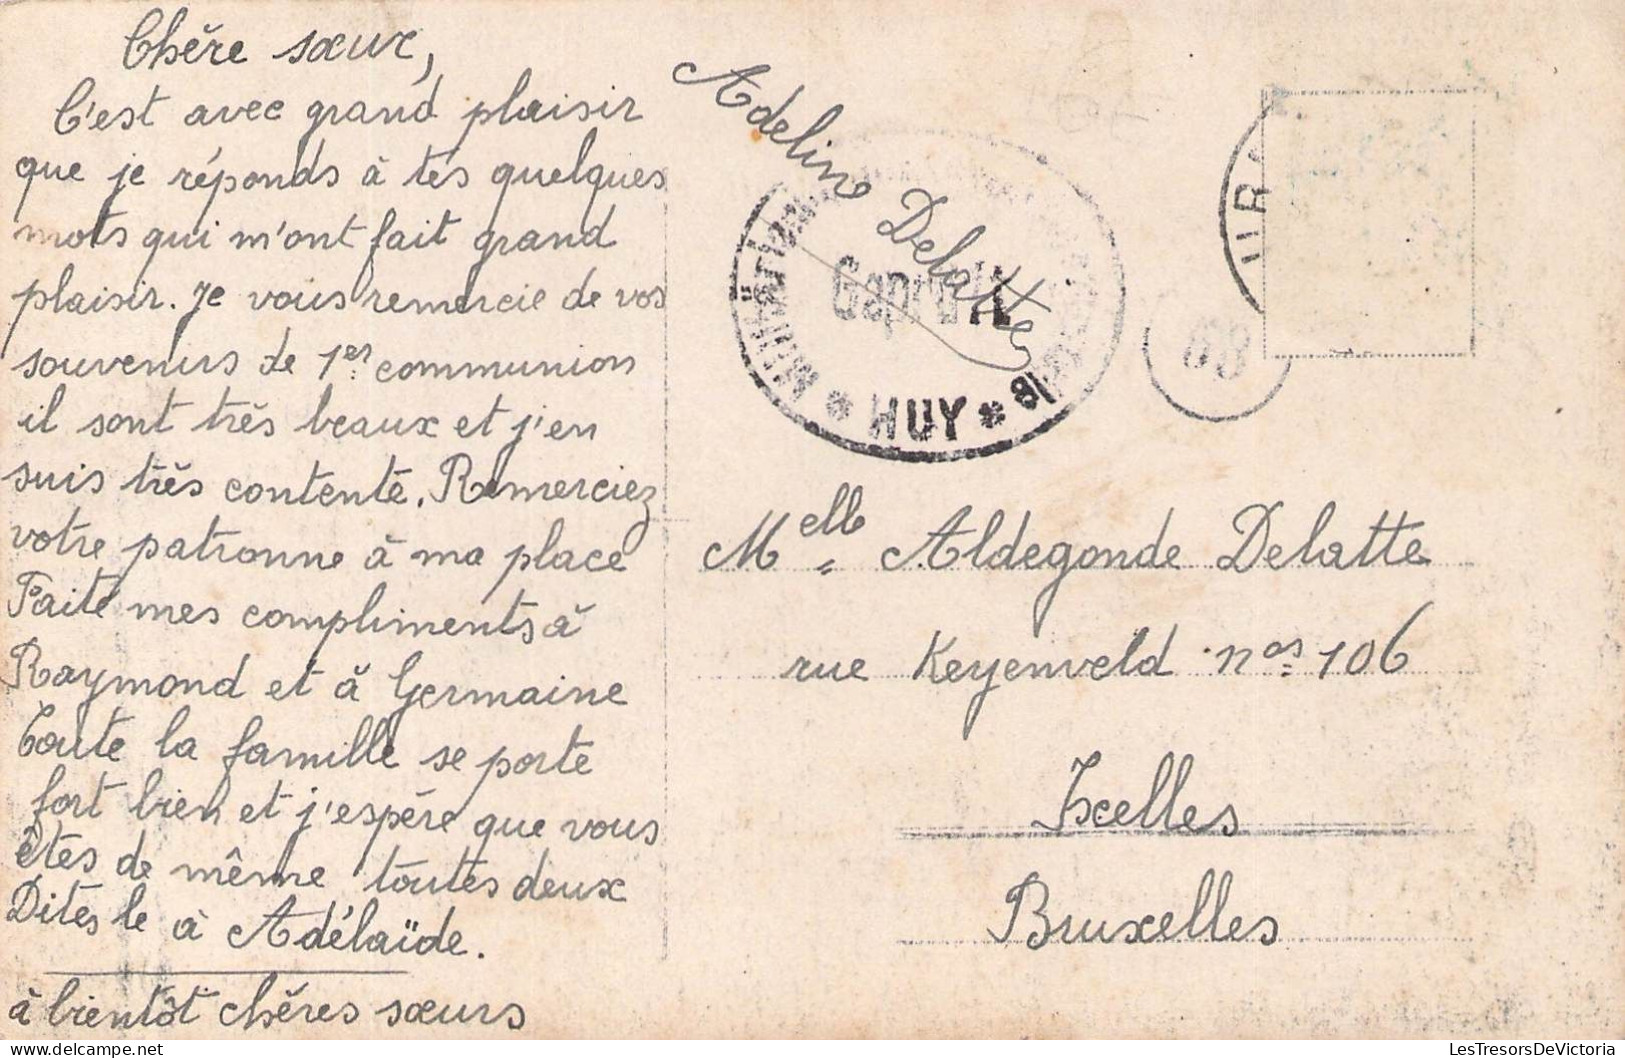 Chère sœur,
C'est avec grand plaisir
que je réponds à tes quelques
mots qui m'ont fait grand
plaisir. Je vous remercie de vos
souvenirs de 1er communion
il sont très beaux et j'en
suis très contente. Remerciez
votre patronne à ma place
Faite mes compliments à
Raymond et à Germaine
Toute la famille se porte
fort bien et j'espère que vous
êtes de même toutes deux
Dites le à Adélaïde.
à bientôt chères sœurs
Adeline Delatte
Geprüft
* HUY *
68
Melle Aldegonde Delatte
rue Keyenveld nos 106
Ixelles
Bruxelles
LesTresorsDeVictoria